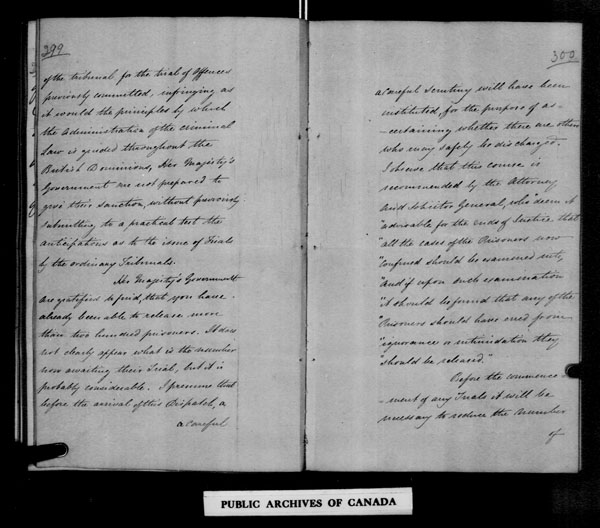 299
of the tribunal for the trial of Offences
previously committed, infringing as
it would the principles by which
the administration of the criminal
Law is guided throughout the
British Dominions, Her Majesty's
Government are not prepared to
give their sanction, without previously
submitting to a practical test the
anticipations as to the issue of Trials
by the ordinary Tribunals.
Her Majesty's Government
are gratified to find, that you have
already been able to release more
than two hundred prisoners. It does
not clearly appear what is the number
now awaiting their Trial, but it is
probably considerable. I presume that
before the arrival of this Dispatch, a
a careful
300
a careful Scrutiny will have been
instituted, for the purpose of as-
-certaining whether there are others
who may safely be discharged.
I observe that this course is
recommended by the Attorney
and Solicitor General, who "deem it
"advisable for the ends of Justice that
"all the cases of the Prisoners now
"confined should be examined into,
"and if upon such examination
"it should be found that any of the
"Prisoners should have erred from
"ignorance or intimidation they
"should be released."
Before the commence-
-ment of any Trials it will be
necessary to reduce the number
of
PUBLIC ARCHIVES OF CANADA